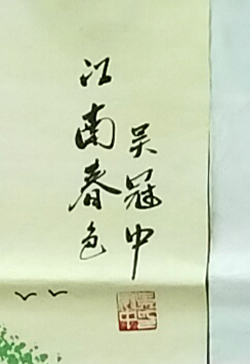 吴冠中
江南春色